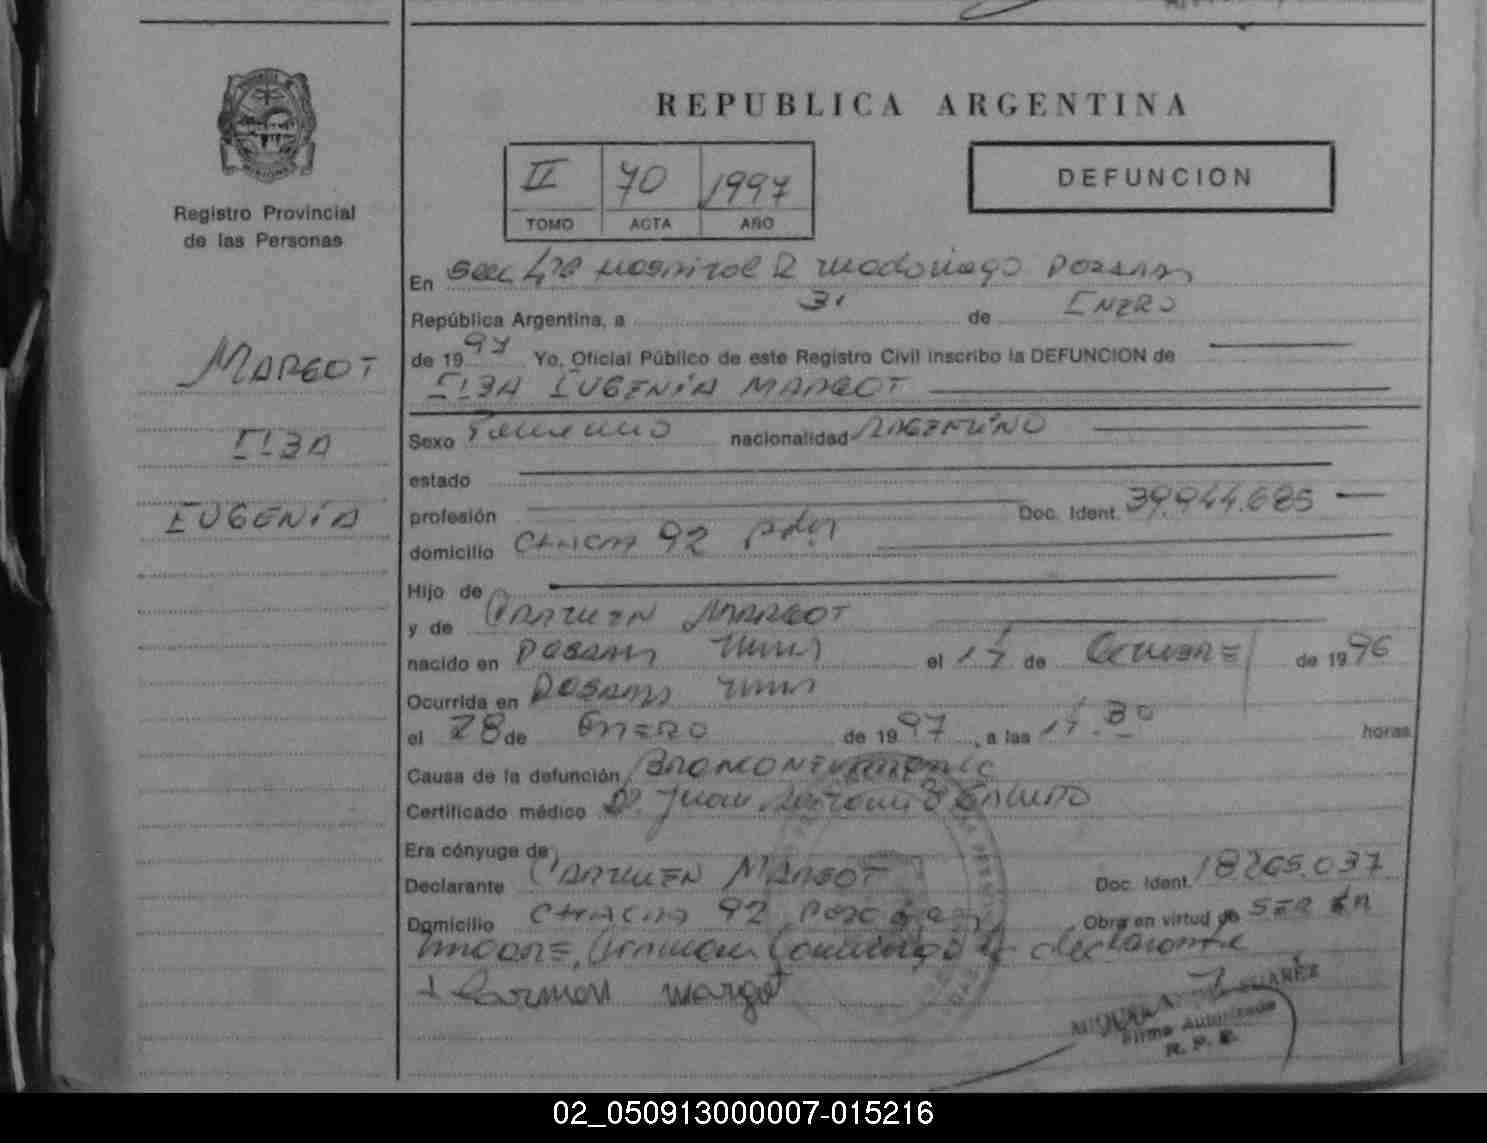 REPUBLICA ARGENTINA
II 70 1997
TOMO ACTA AÑO
DEFUNCION
Registro Provincial
de las Personas
MARGOT
ELBA
EUGENIA
En Secc 4ta Hospital R Madariaga Posadas
República Argentina, a 31 de ENERO
de 1997 Yo, Oficial Público de este Registro Civil inscribo la DEFUNCION de
ELBA EUGENIA MARGOT
Sexo Femenino nacionalidad ARGENTINO
estado
profesión Doc. Ident. 39.944.685
domicilio CHACRA 92 Pdas
Hijo de
y de CARMEN MARGOT
nacido en POSADAS Mnes el 17 de OCTUBRE de 1996
Ocurrida en POSADAS Mnes
el 28 de ENERO de 1997, a las 17.30 horas
Causa de la defunción
Certificado médico Dr. Juan Antonio
Era cónyuge de
Declarante CARMEN MARGOT Doc. Ident. 18265.037
Domicilio CHACRA 92 Obra en virtud de SER LA
MADRE, declarante
+ Carmen Margot
SUAREZ
Firma Autorizada
R. P. P.
02_050913000007-015216